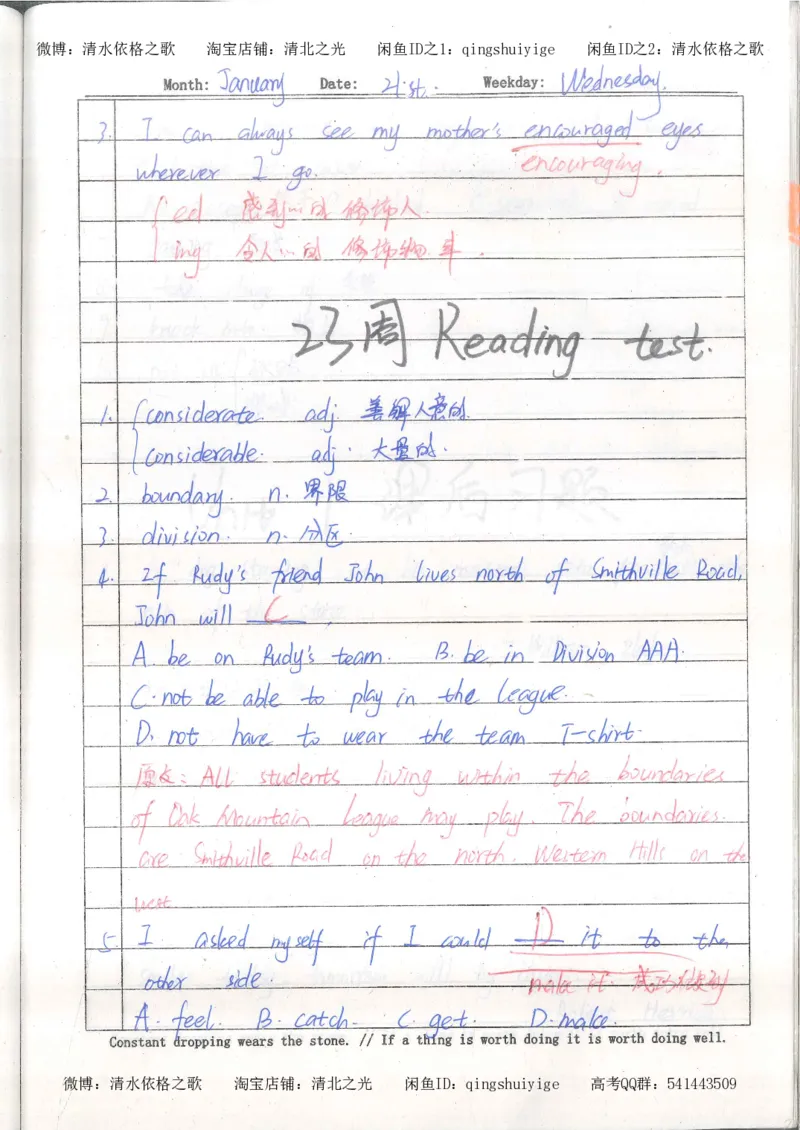 微博：清水依格之歌 淘宝店铺：清北之光 闲鱼ID之1：qingshuiyige 闲鱼ID之2：清水依格之歌
Month: January Date: 21st. Weekday: Wednesday.
3. I can always see my mother's encouraged eyes
wherever I go. encouraging.
ed 感到…的 修饰人
ing 令人…的 修饰物.
23周 Reading test.
1. considerate. adj. 善解人意的
considerable. adj. 大量的.
2. boundary. n. 界限
3. division. n. 分区.
4. If Rudy's friend John lives north of Smithville Road,
John will C,
A. be on Rudy's team. B. be in Division AAA.
C. not be able to play in the league.
D. not have to wear the team T-shirt.
原文: All students living within the boundaries
of Oak Mountain League may play. The boundaries
are Smithville Road on the north. Western Hills on the
west
5. I asked myself if I could D it to the
other side. make it. 成功
A. feel. B. catch. C. get. D. make.
Constant dropping wears the stone. // If a thing is worth doing it is worth doing well.
微博：清水依格之歌 淘宝店铺：清北之光 闲鱼ID：qingshuiyige 高考QQ群：541443509